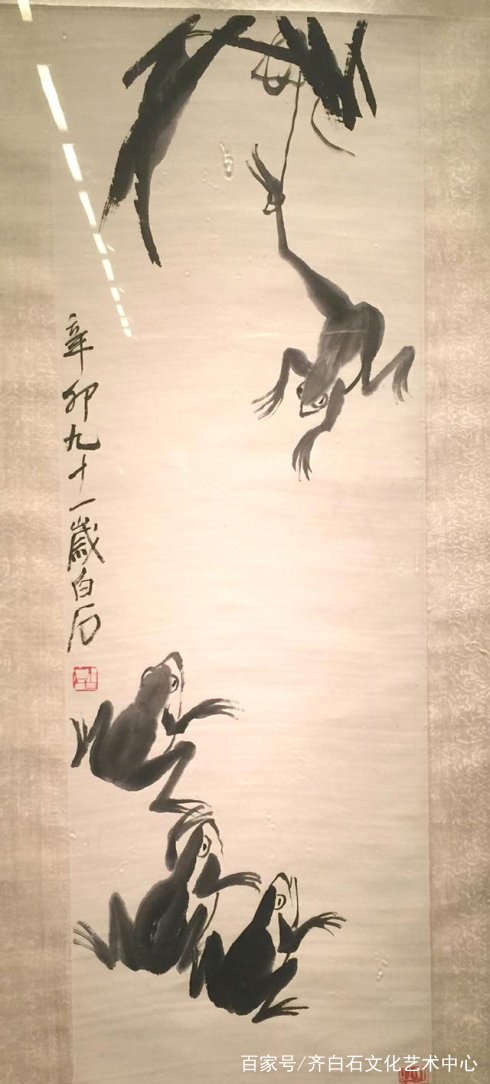 辛卯九十一岁白石
百家号/齐白石文化艺术中心